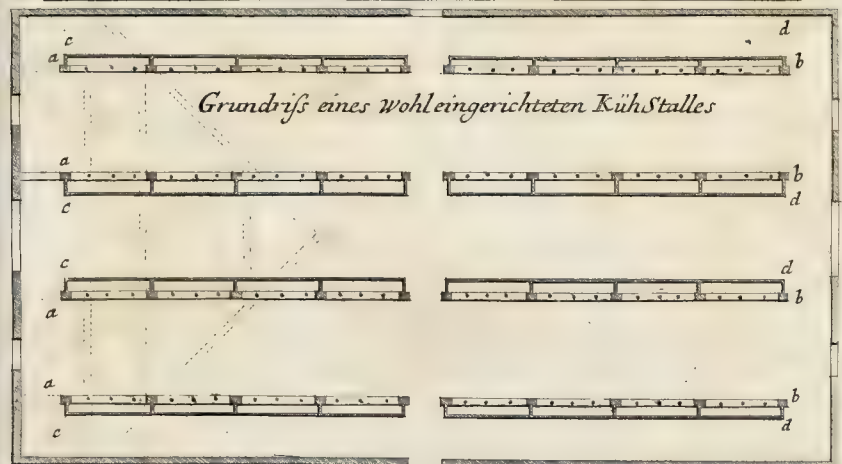 c d
a b
Grundriſs eines wohl eingerichteten KühStalles
a b
c d
c d
a b
a b
c d